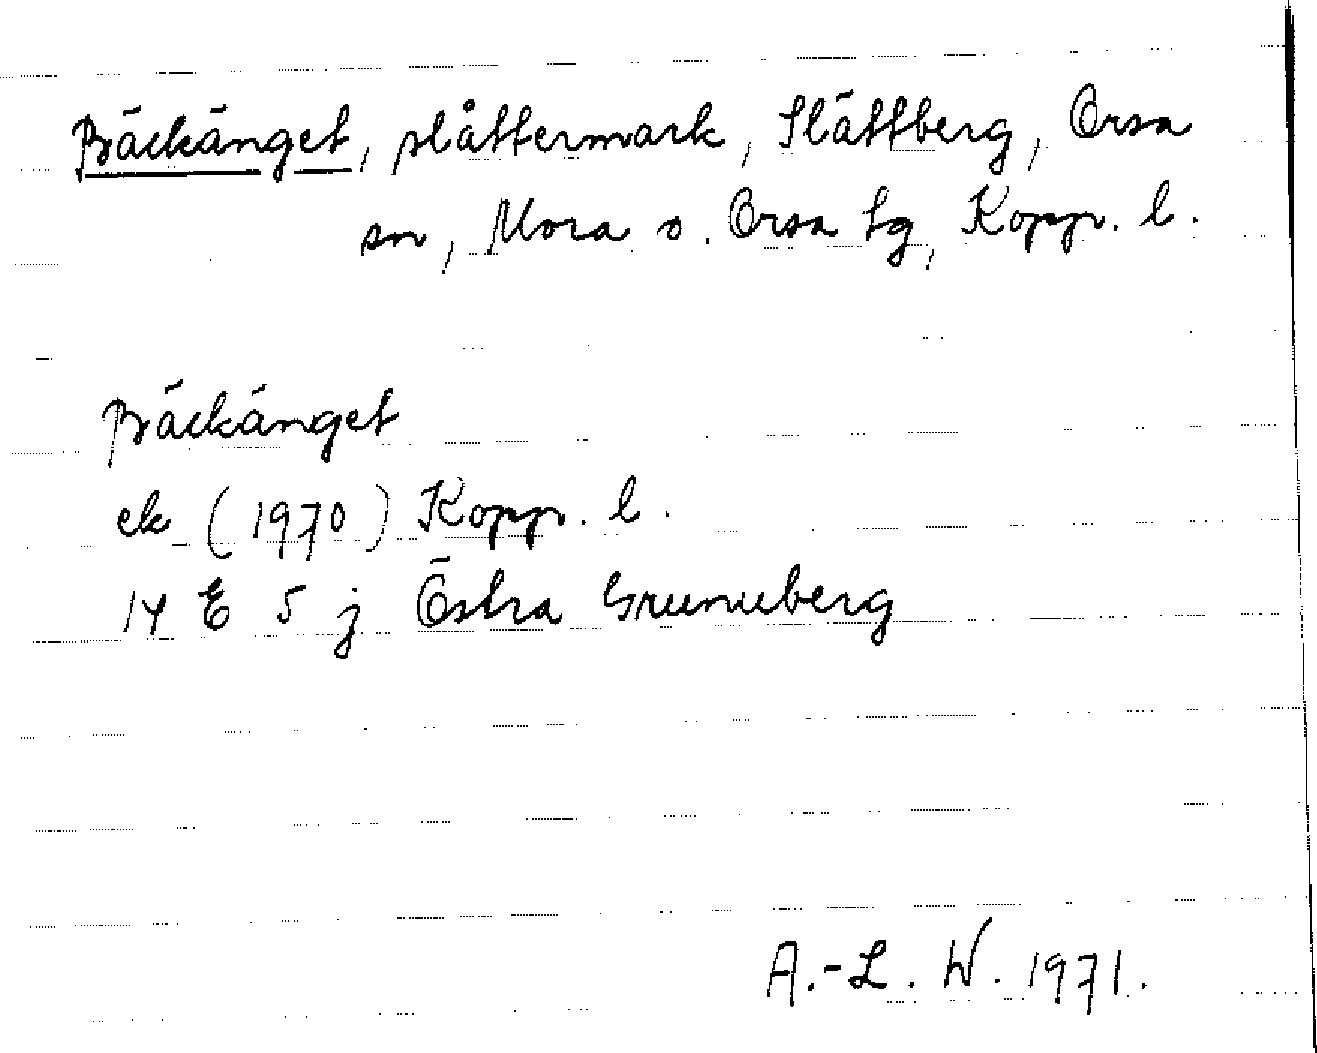 Bäckänget, slåttermark, Slättberg, Orsa
sn, Mora o. Orsa tg, Kopp. l.
Bäckänget
ek (1970) Kopp. l.
14 E 5 j Östra Grunuberg
A.-L. W. 1971.